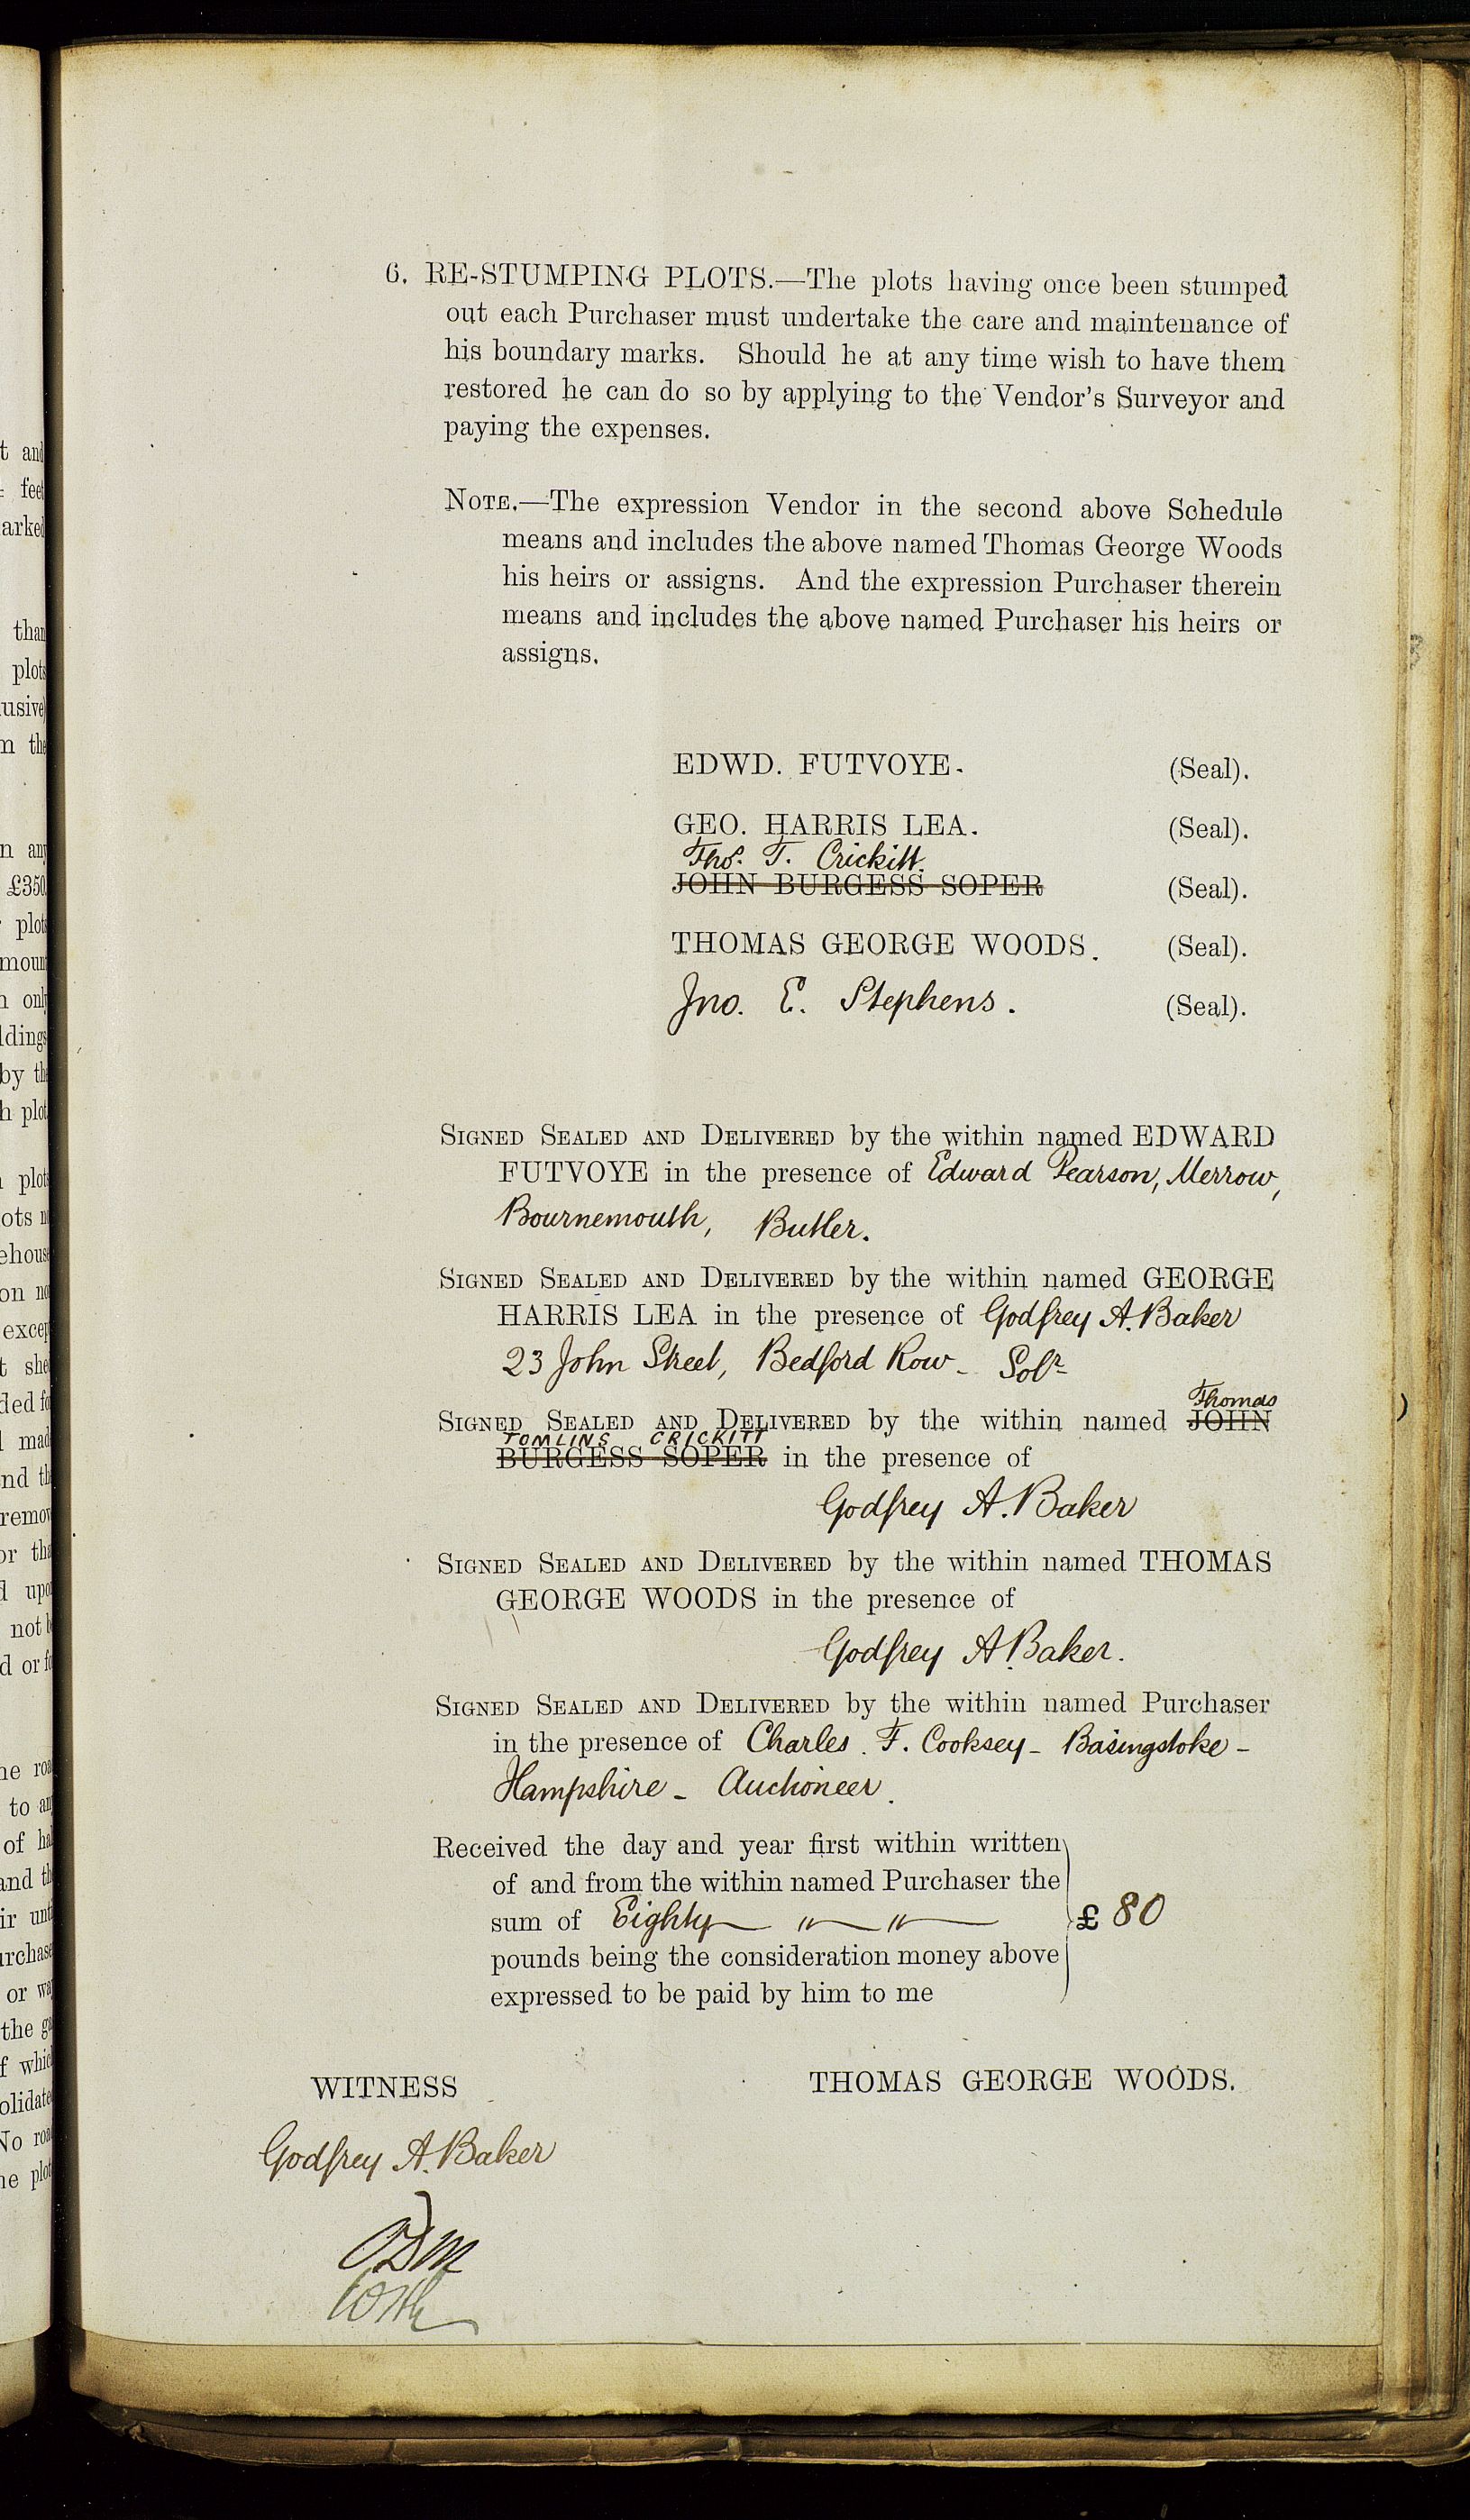 6. RE-STUMPING PLOTS.—The plots having once been stumped
out each Purchaser must undertake the care and maintenance of
his boundary marks. Should he at any time wish to have them
restored he can do so by applying to the Vendor's Surveyor and
paying the expenses.
NOTE.—The expression Vendor in the second above Schedule
means and includes the above named Thomas George Woods
his heirs or assigns. And the expression Purchaser therein
means and includes the above named Purchaser his heirs or
assigns.
EDWD. FUTVOYE. (Seal).
GEO. HARRIS LEA. (Seal).
Thos. T. Crickitt.
JOHN BURGESS SOPER (Seal).
THOMAS GEORGE WOODS. (Seal).
Jno. E. Stephens. (Seal).
SIGNED SEALED AND DELIVERED by the within named EDWARD
FUTVOYE in the presence of Edward Pearson, Merrow,
Bournemouth, Butler.
SIGNED SEALED AND DELIVERED by the within named GEORGE
HARRIS LEA in the presence of Godfrey A. Baker
23 John Street, Bedford Row - Solr
Thomas
SIGNED SEALED AND DELIVERED by the within named JOHN
TOMLINS CRICKITT
BURGESS SOPER in the presence of
Godfrey A. Baker
SIGNED SEALED AND DELIVERED by the within named THOMAS
GEORGE WOODS in the presence of
Godfrey A. Baker.
SIGNED SEALED AND DELIVERED by the within named Purchaser
in the presence of Charles. F. Cooksey - Basingstoke -
Hampshire - Auctioneer.
Received the day and year first within written
of and from the within named Purchaser the
sum of Eighty £ 80
pounds being the consideration money above
expressed to be paid by him to me
THOMAS GEORGE WOODS.
WITNESS
Godfrey A. Baker